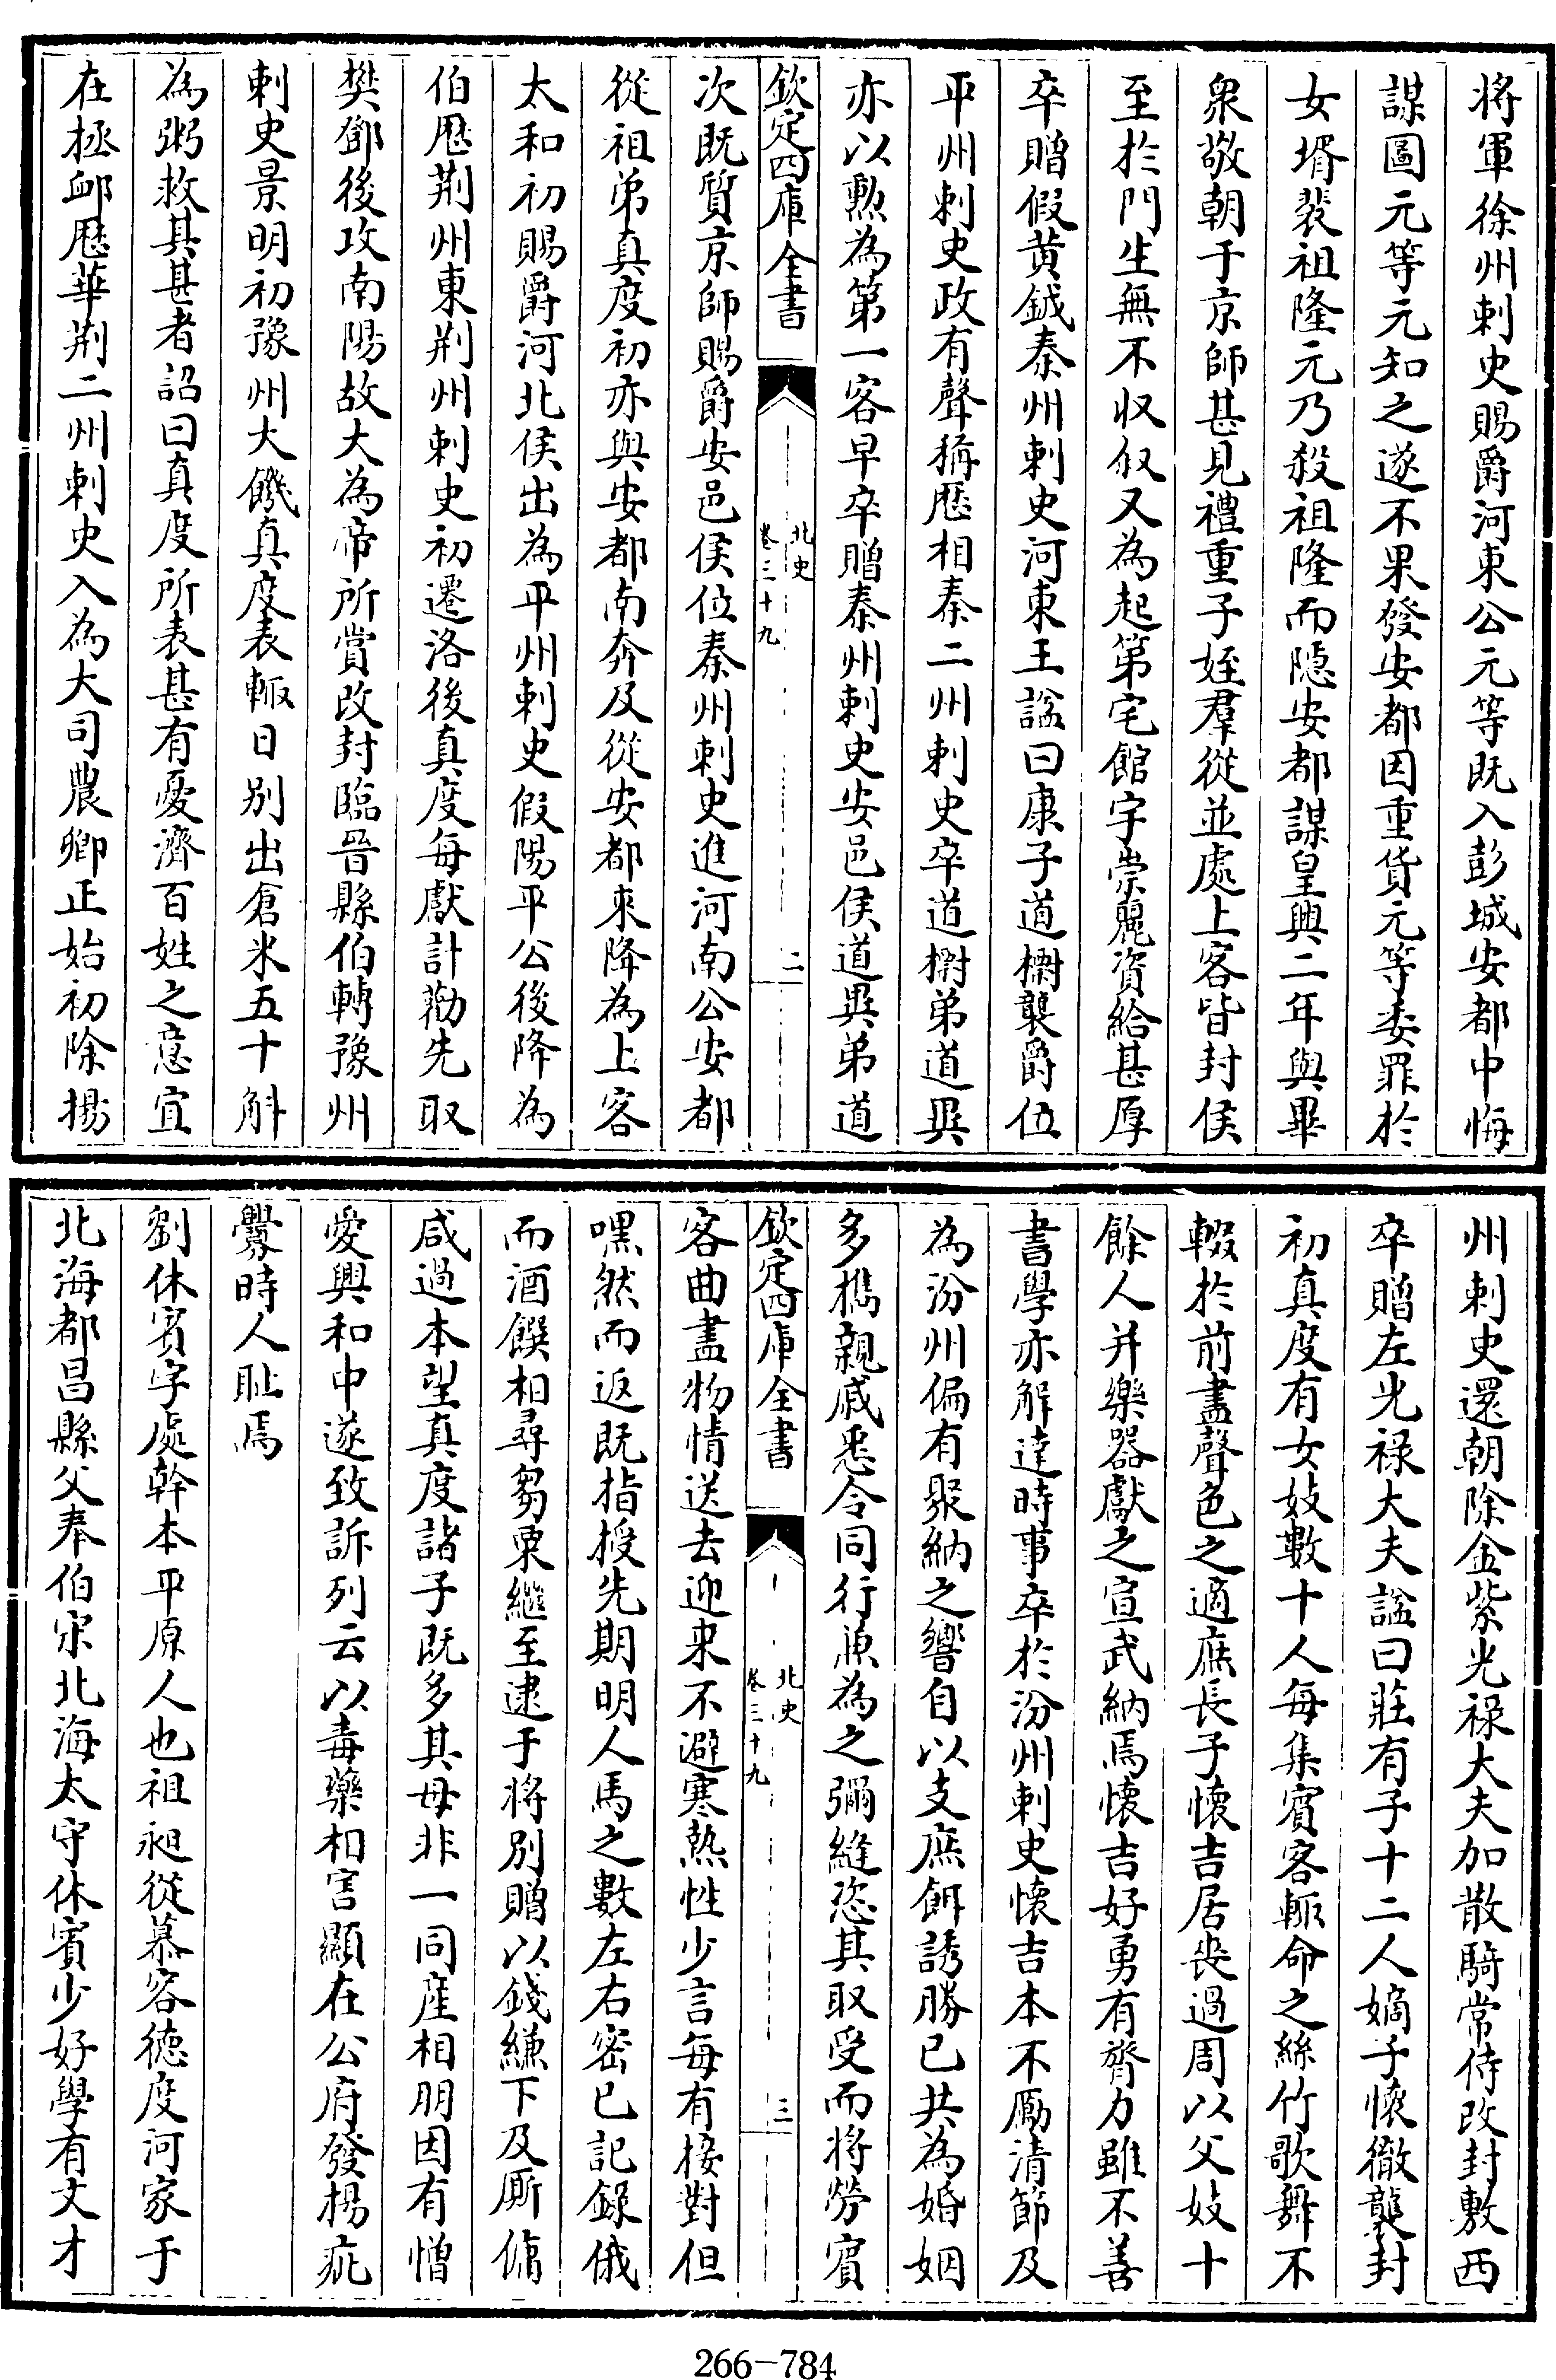 將軍徐州刺史賜爵河東公元等既入彭城安都中悔
謀圖元等元知之遂不果發安都因重貨元等委罪於
女壻裴祖隆元乃殺祖隆而隠安都謀皇興二年與畢
衆敬朝于京師甚見禮重子姪羣從並處上客皆封侯
至於門生無不収叙又為起第宅館宇崇麗資給甚厚
卒贈假黄鉞秦州刺史河東王諡曰康子道㯹襲爵位
平州刺史政有聲稱歴相秦二州刺史卒道㯹弟道異
亦以勲為第一客早卒贈秦州刺史安邑侯道異弟道
欽定四庫全書
北史
卷三十九
二
次既質京師賜爵安邑侯位秦州刺史進河南公安都
從祖弟真度初亦與安都南奔及從安都來降為上客
太和初賜爵河北侯出為平州刺史假陽平公後降為
伯歴荆州東荆州刺史初遷洛後真度每獻計勸先取
樊鄧後攻南陽故大為帝所賞改封臨晉縣伯轉豫州
刺史景明初豫州大饑真度表輙日别出倉米五十斛
為粥救其甚者詔曰真度所表甚有憂濟百姓之意宜
在拯䘏歴華荆二州刺史入為大司農卿正始初除揚
州刺史還朝除金紫光禄大夫加散騎常侍改封敷西
卒贈左光禄大夫諡曰莊有子十二人嫡子懷徹襲封
初真度有女妓數十人每集賓客輙命之絲竹歌舞不
輟於前盡聲色之適庶長子懷吉居喪過周以父妓十
餘人并樂器獻之宣武納焉懷吉好勇有膂力雖不善
書學亦解達時事卒於汾州刺史懷吉本不厲清節及
為汾州偏有聚納之響自以支庶餌誘勝已共為婚姻
多攜親戚悉令同行兼為之彌縫恣其取受而將勞賓
欽定四庫全書
北史
卷三十九
三
客曲盡物情送去迎來不避寒熱性少言每有接對但
嘿然而返既指授先期明人馬之數左右密已記録俄
而酒饌相尋芻粟繼至逮于將别贈以錢縑下及厮傭
咸過本望真度諸子既多其母非一同産相朋因有憎
愛興和中遂致訴列云以毒藥相害顯在公府發揚疵
釁時人恥焉
劉休賓字處幹本平原人也祖昶從慕容徳度河家于
北海都昌縣父奉伯宋北海太守休賓少好學有文才
266-784